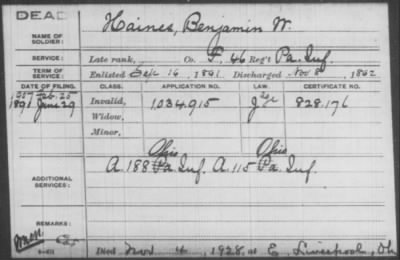 DEAD
NAME OF SOLDIER: Haines, Benjamin W.
SERVICE: Late rank, Co. F, 46 Reg't Pa. Inf.
TERM OF SERVICE: Enlisted Sep. 16, 1861. Discharged Nov 8, 1862
DATE OF FILING. CLASS. APPLICATION NO. LAW. CERTIFICATE NO.
1891 June 29 Invalid, 1034915 828.176
Widow,
Minor,
Ohio Ohio
ADDITIONAL SERVICES: A. 188 Pa Inf. A. 115 Pa. Inf.
REMARKS:
Died Nov 4, 1928, at E. Liverpool, Oh